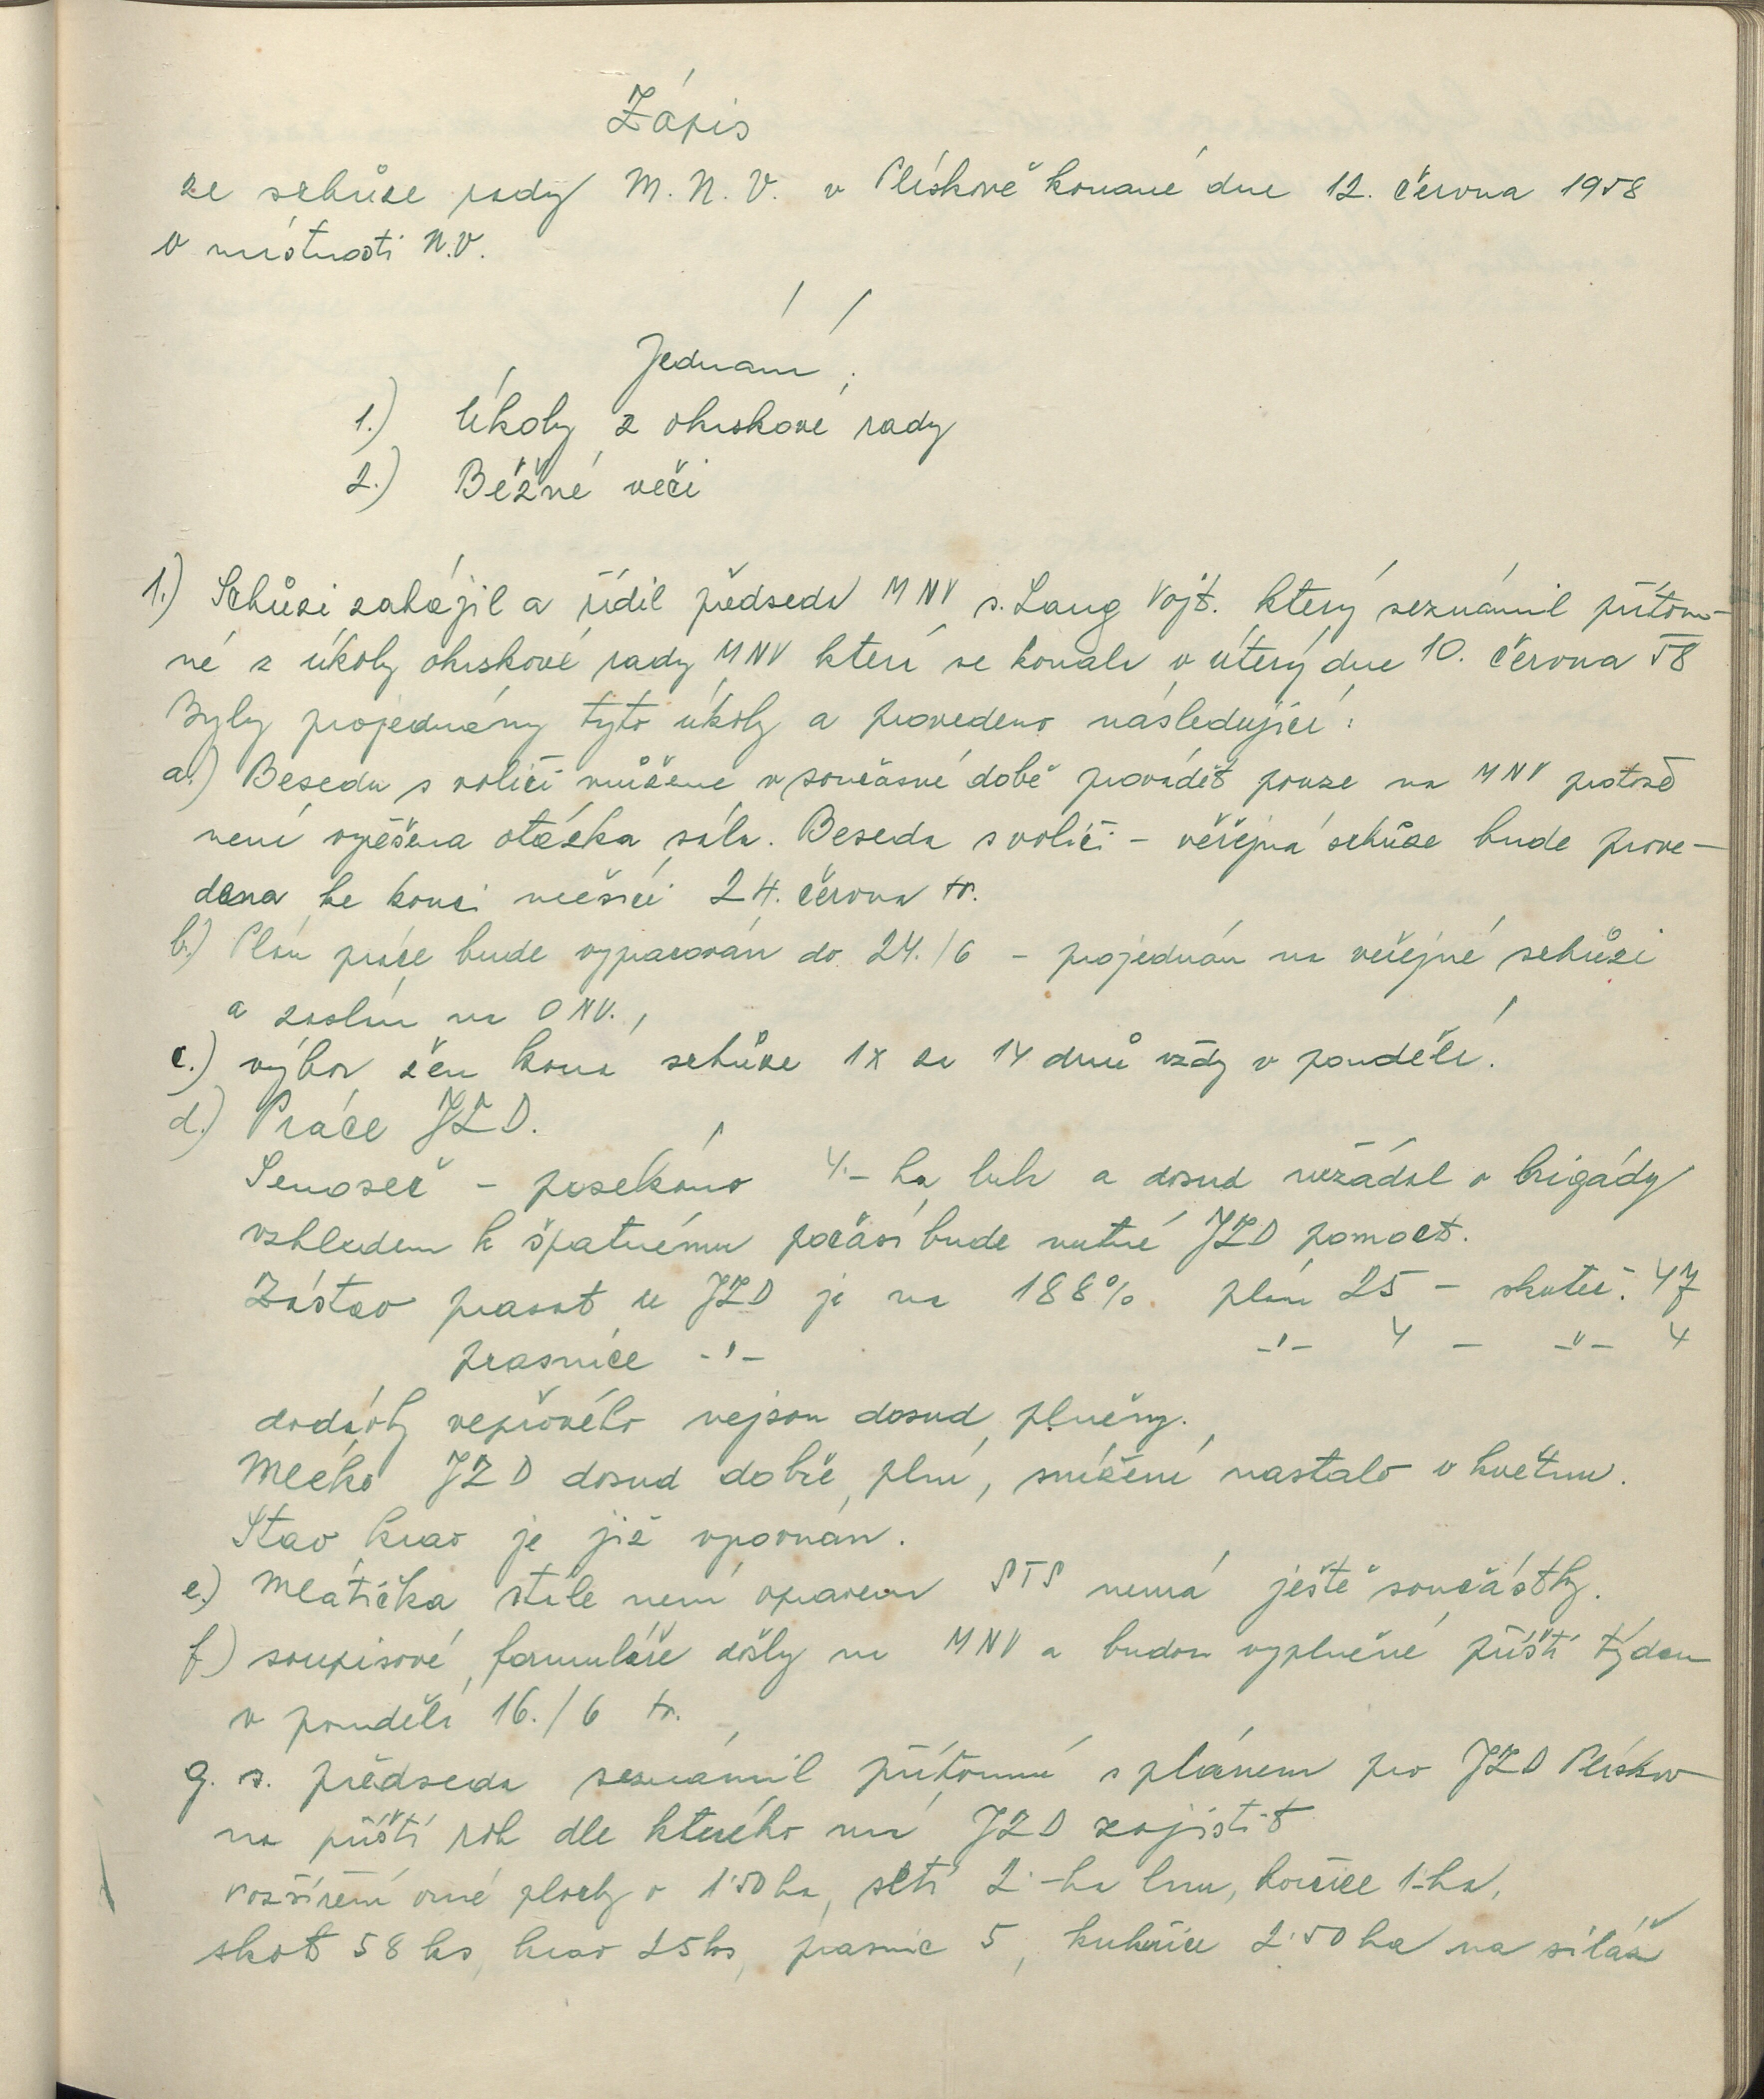 Zápis
ze schůze rady M. N. V. v Plískově konané dne 12. června 1958
v místnosti N.V.
Jednání ;
1.) Úkoly z okrskové rady
2.) Běžné věci
1.) Schůzi zahájil a řídil předseda MNV s. Lang Vojt. který seznámil přítom-
né z úkoly okrskové rady MNV která se konala v úterý dne 10. června 58
Byly projednány tyto úkoly a provedeno následující:
a.) Besedu s voliči můžeme v současné době provádět pouze na MNV protože
není vyřešena otázka sálu. Beseda s voliči – veřejná schůze bude prove-
dena ke konci měsíci 24. června tr.
b.) Plán práce bude vypracován do 24./6 – projednán na veřejné schůzi
a zaslán na ONV.
c.) výbor žen koná schůze 1x za 14 dnů vždy v pondělí.
d.) Práce JZD.
Senoseč – posekáno 4.– ha luk a dosud nežádal o brigády
vzhledem k špatnému počásí bude nutné JZD pomoct.
Zástav prasat u JZD je na 188% plán 25 – skuteč. 47
prasnice -"- -"- 4 – -"- 4
dodávky vepřového nejsou dosud plněny.
Mléko JZD dosud dobře plní, snížení nastalo v květnu.
Stav krav je již vyrovnán.
e.) Mlátička stále není opravena STS nemá ještě součástky.
f) soupisové formuláře došly na MNV a budou vyplněné příští týden
v pondělí 16./6 tr.
g. s. předseda seznámil přítomné s plánem pro JZD Plískov
na příští rok dle kterého má JZD zajistit
rozšíření orné plochy o 1'50 ha, setí 2'-ha lnu, hořčice 1'-ha,
skot 58 ks, krav 25 ks, prasnic 5, kukuřice 2'50 ha na siláž